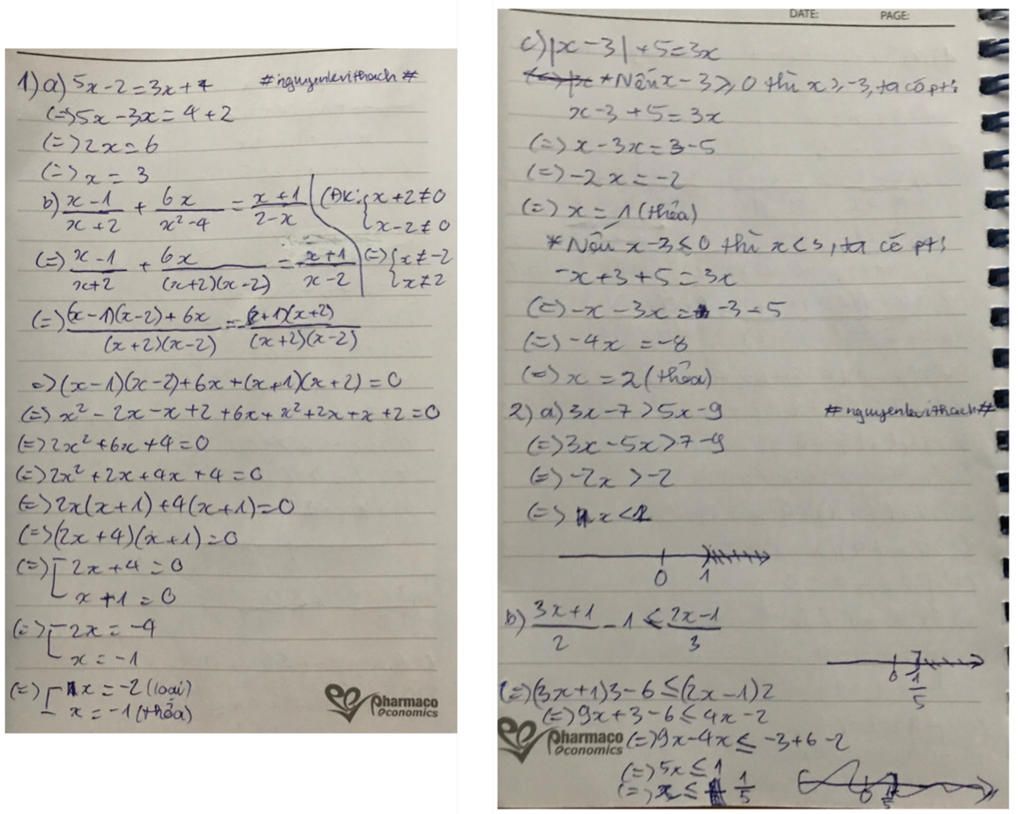 1) a) 5x-2=3x+4 #nguyenlevithach#
(=>5x-3x=4+2
(=>2x=6
(=>x=3
b) \frac{x-1}{x+2} + \frac{6x}{x²-4} = \frac{x+1}{2-x} (ĐK: {x+2≠0
x-2≠0
(=>\frac{x-1}{x+2} + \frac{6x}{(x+2)(x-2)} = \frac{x+1}{x-2} (=>{x≠-2
x≠2
(=>\frac{(x-1)(x-2)+6x}{(x+2)(x-2)} = \frac{(x+1)(x+2)}{(x+2)(x-2)}
=>(x-1)(x-2)+6x+(x+1)(x+2)=0
(=>x²-2x-x+2+6x+x²+2x+x+2=0
(=>2x²+6x+4=0
(=>2x²+2x+4x+4=0
(=>2x(x+1)+4(x+1)=0
(=>(2x+4)(x+1)=0
(=>[2x+4=0
x+1=0
(=>[2x=-4
x=-1
(=>[x=-2 (loại)
x=-1 (thỏa)
Pharmaco
economics
DATE: PAGE:
c) |x-3|+5=3x
*Nếu x-3≥0 thì x≥-3, ta có pt:
x-3+5=3x
(=>x-3x=3-5
(=>-2x=-2
(=>x=1 (thỏa)
*Nếu x-3≤0 thì x<3, ta có pt:
-x+3+5=3x
(=>-x-3x=-3-5
(=>-4x=-8
(=>x=2 (thỏa)
2) a) 3x-7>5x-9 #nguyenlevithach#
(=>3x-5x>7-9
(=>-2x>-2
(=>x<1
0 1
b) \frac{3x+1}{2} - 1 ≤ \frac{2x-1}{3}
0 \frac{1}{5}
(=>(3x+1)3-6≤(2x-1)2
(=>9x+3-6≤4x-2
(=>9x-4x≤-3+6-2
(=>5x≤1
(=>x≤\frac{1}{5}
0 \frac{1}{5}
Pharmaco
economics